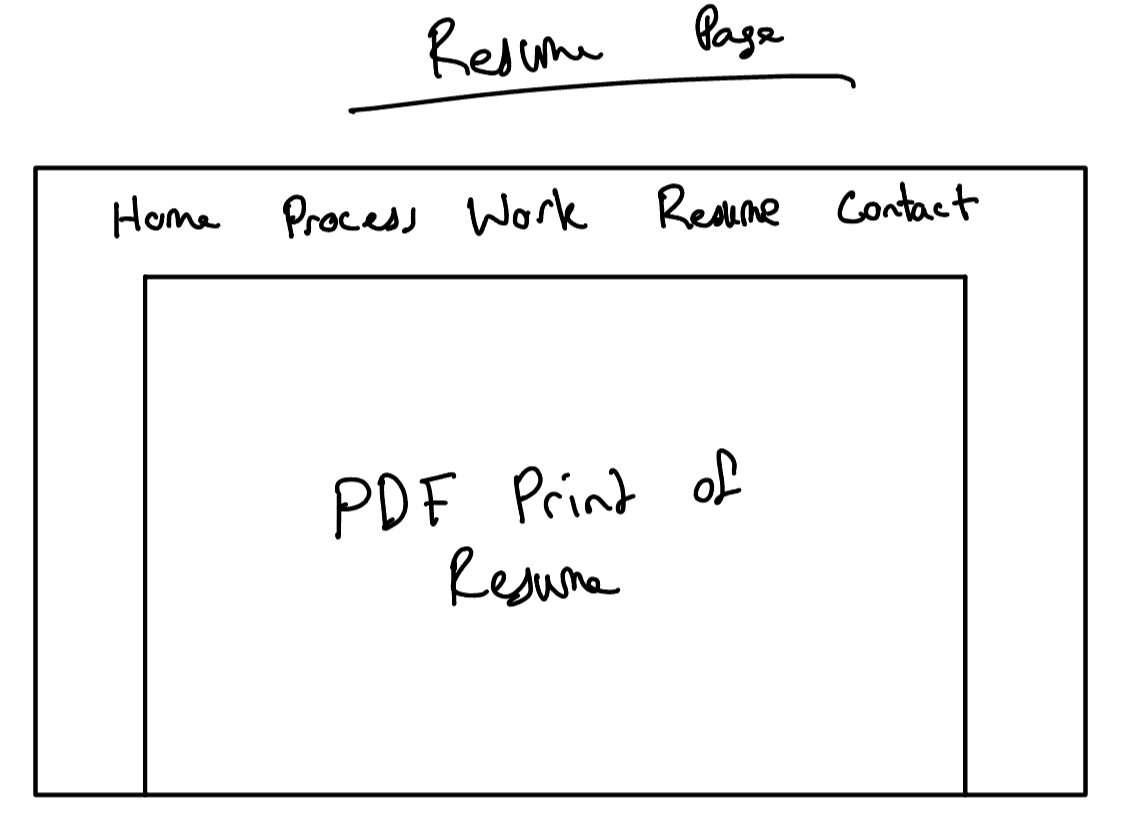 Resume Page
Home Process Work Resume Contact
PDF Print of
Resume